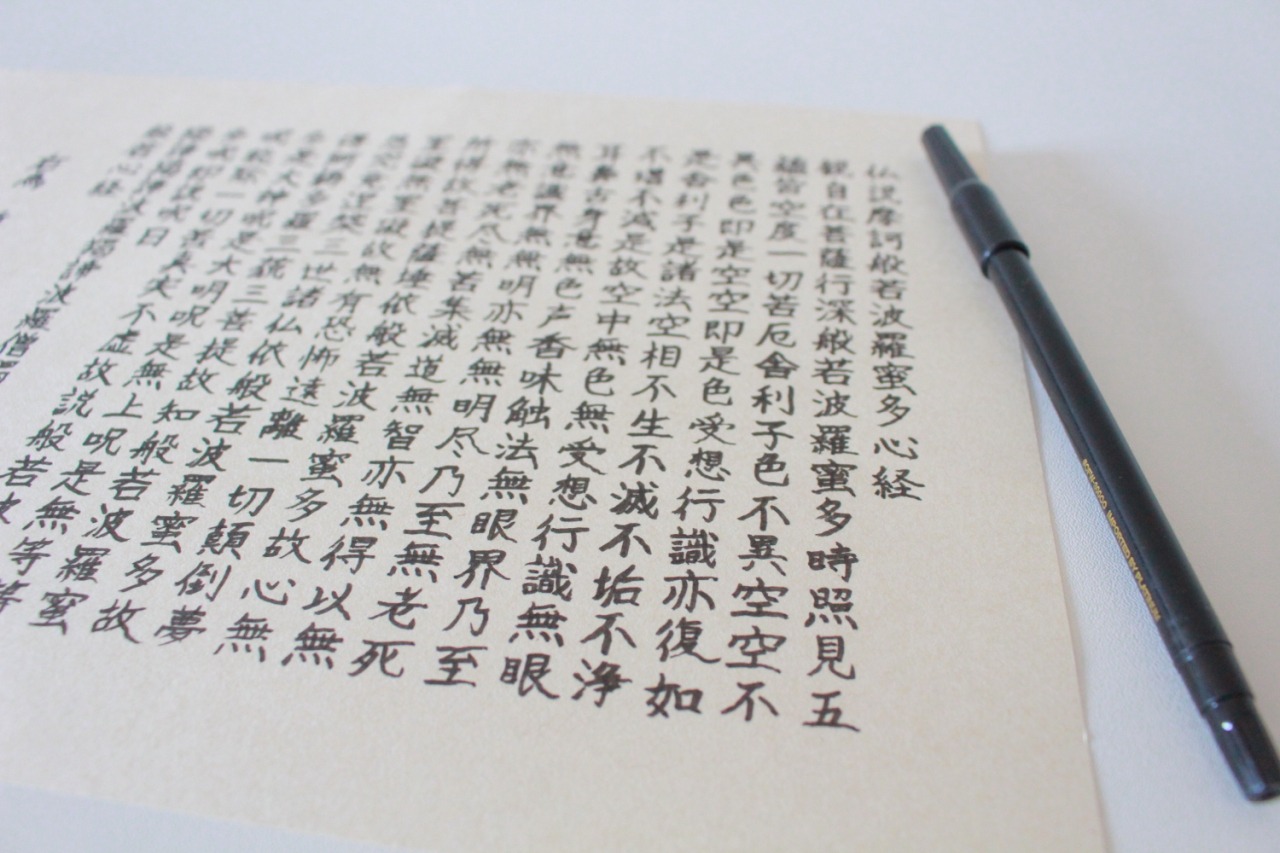 仏説摩訶般若波羅蜜多心経
観自在菩薩行深般若波羅蜜多時照見五
蘊皆空度一切苦厄舎利子色不異空空不
異色色即是空空即是色受想行識亦復如
是舎利子是諸法空相不生不滅不垢不浄
不増不減是故空中無色無受想行識無眼
耳鼻舌身意無色声香味触法無眼界乃至
無意識界無無明亦無無明尽乃至無老死
亦無老死尽無苦集滅道無智亦無得以無
所得故菩提薩埵依般若波羅蜜多故心無
罣礙無罣礙故無有恐怖遠離一切顛倒夢
想究竟涅槃三世諸仏依般若波羅蜜多故
得阿耨多羅三藐三菩提故知般若波羅蜜
多是大神呪是大明呪是無上呪是無等等
呪能除一切苦真実不虚故説般若波
多呪即説呪日
羯諦羯諦波羅羯諦波羅僧羯
般若心経
IMPORTED BY PLATINUM